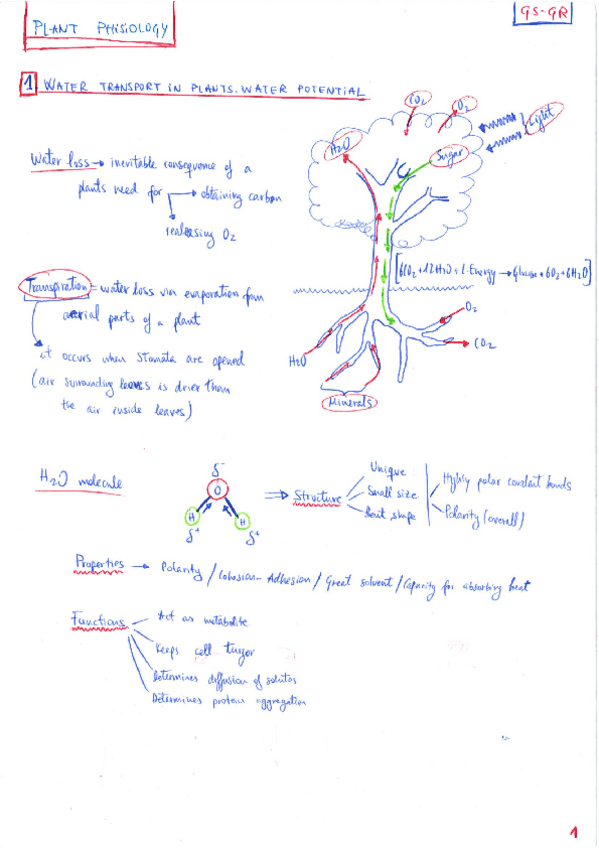 PLANT PHISIOLOGY
GS-GR
1 WATER TRANSPORT IN PLANTS. WATER POTENTIAL
CO2
O2
Light
H2O
Sugar
Water loss → inevitable consequence of a
plants need for → obtaining carbon
realeasing O2
[6CO2 + 12H2O + L.Energy → Glucose + 6O2 + 6H2O]
Transpiration = water loss via evaporation from
aerial parts of a plant
O2
CO2
H2O
Minerals
it occurs when stomata are opened
(air surrounding leaves is drier than
the air inside leaves)
H2O molecule
δ-
O
H
H
δ+
δ+
⇒ Structure
Unique
Small size
Bent shape
Highly polar covalent bonds
Polarity (overall)
Properties → Polarity / Cohesion - Adhesion / Great solvent / Capacity for absorbing heat
Functions
Act as metabolite
Keeps cell turgor
Determines diffusion of solutes
Determines protein aggregation
1